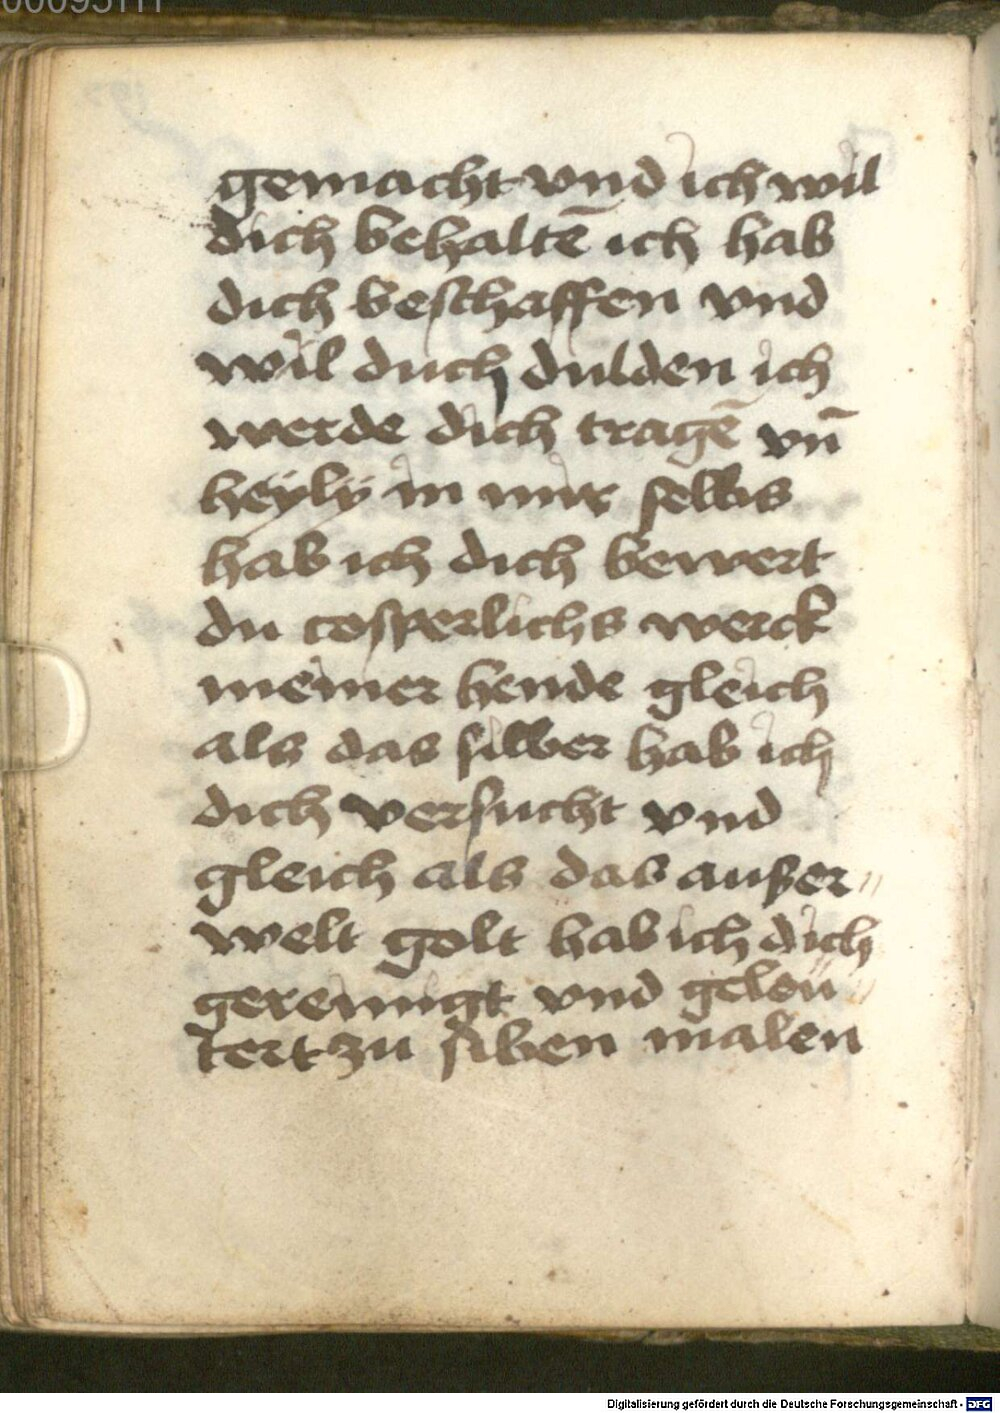 gemacht vnd ich wil
dich behaltē ich hab
dich beschaffen vnd
wil duch dulden ich
werde dich tragē vn̄
heyly in mir selbis
hab ich dich bewert
du cosperlichs werck
meiner hende gleich
als das silber hab ich
dich versucht vnd
gleich als das außer„
welt golt hab ich dich
gereinigt vnd geleu„
tert zu siben malen
Digitalisierung gefördert durch die Deutsche Forschungsgemeinschaft - DFG